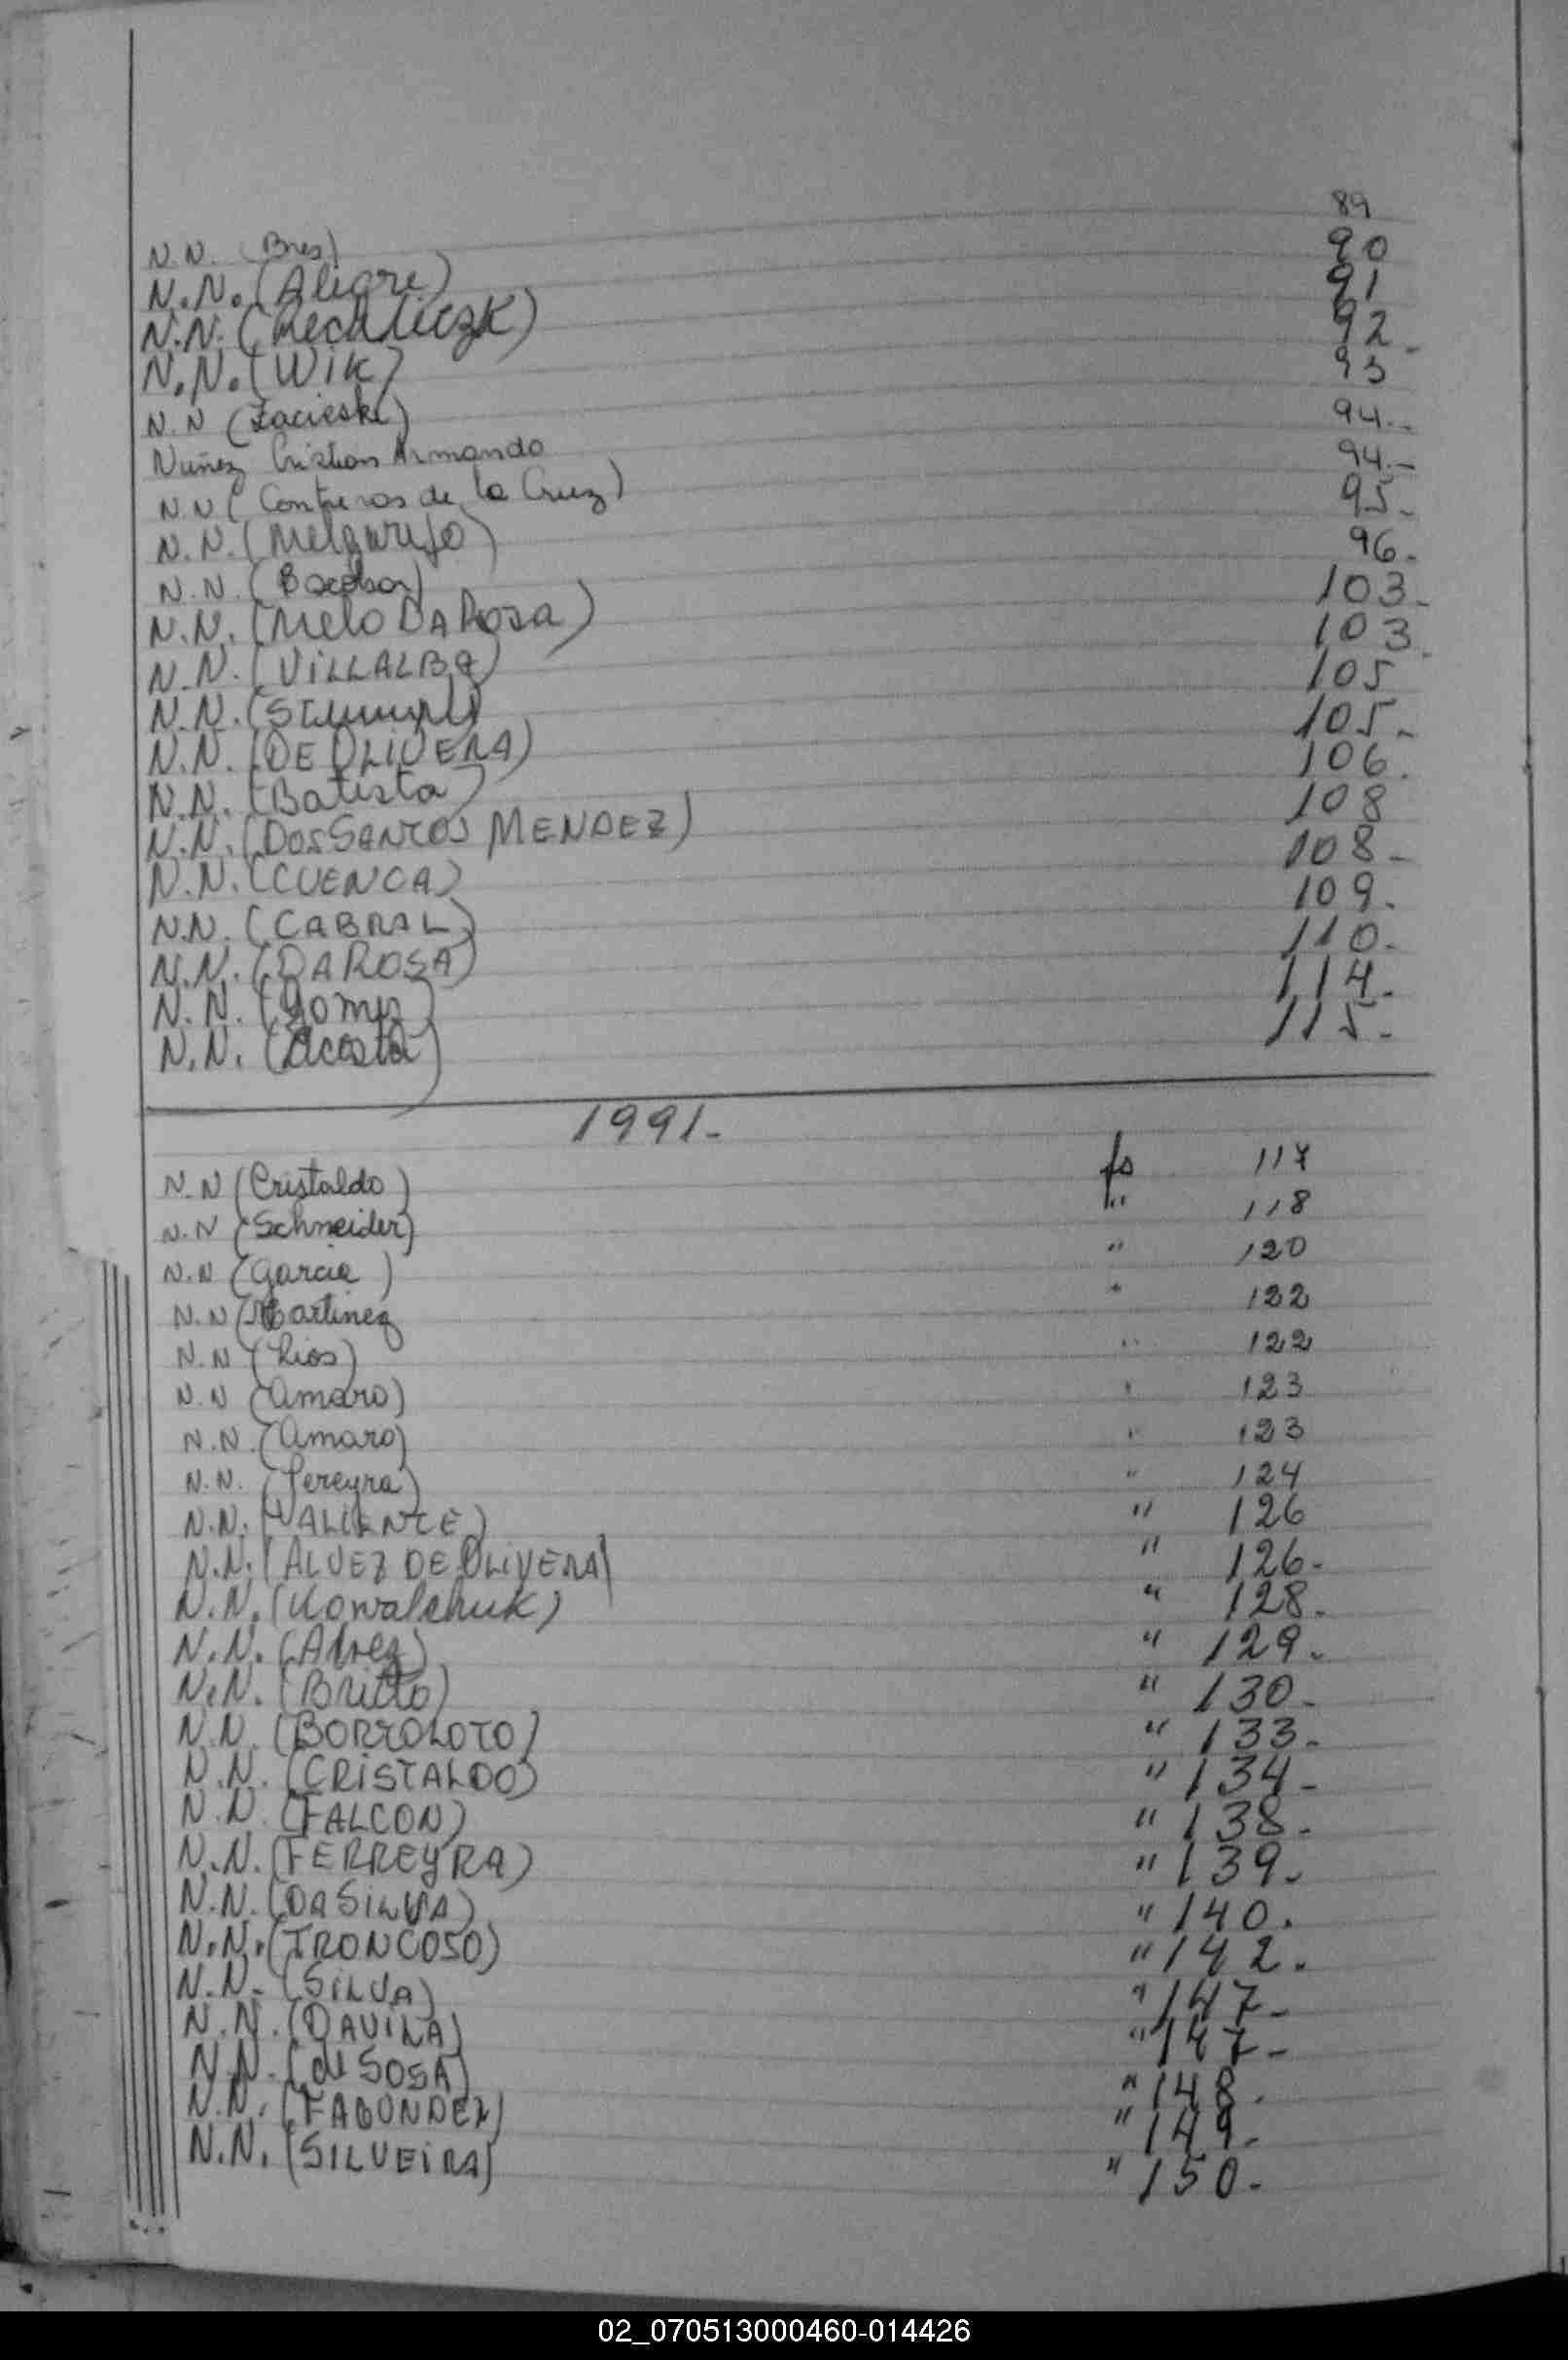 N.N. (Bres) 89
N.N. (Alegre) 90
N.N. 91
N.N. (Wik) 92
N.N (Zacieski) 93
Nuñez Cristian Armando 94.-
N.N (Contreras de la Cruz) 94.-
N.N. (Melgarejo) 95.
N.N. 96.
N.N. (Melo DA Rosa) 103.
N.N. (VILLALBA) 103
N.N. 105
N.N. (DE OLIVERA) 105.
N.N. (Batista) 106.
N.N. (DOS SANTOS MENDEZ) 108
N.N. (CUENCA) 108-
N.N. (CABRAL) 109.
N.N. (DA ROSA) 110.
N.N. (Gomez) 114.
N.N. (Acosta) 115-
1991-
N.N (Cristaldo) fs 117
N.N (Schneider) " 118
N.N (Garcia) " 120
N.N (Martinez " 122
N.N (Rios) " 122
N.N (Amaro) " 123
N.N. (Amaro) " 123
N.N. (Pereyra) " 124
N.N. (VALIENTE) " 126
N.N. (ALVEZ DE OLIVERA) " 126-
N.N. (Kowalchuk) " 128.
N.N. (Alvez) " 129.
N.N. (Britto) " 130-
N.N. (BORTOLOTO) " 133.
N.N. (CRISTALDO) " 134-
N.N. (FALCON) " 138.
N.N. (FERREYRA) " 139.
N.N. (DA SILVA) " 140.
N.N. (TRONCOSO) " 142.
N.N. (SILVA) " 147-
N.N. (DAVILA) " 147-
N.N. (de SOSA) " 148.
N.N. (FAGUNDEZ) " 149.
N.N. (SILVEIRA) " 150-
02_070513000460-014426